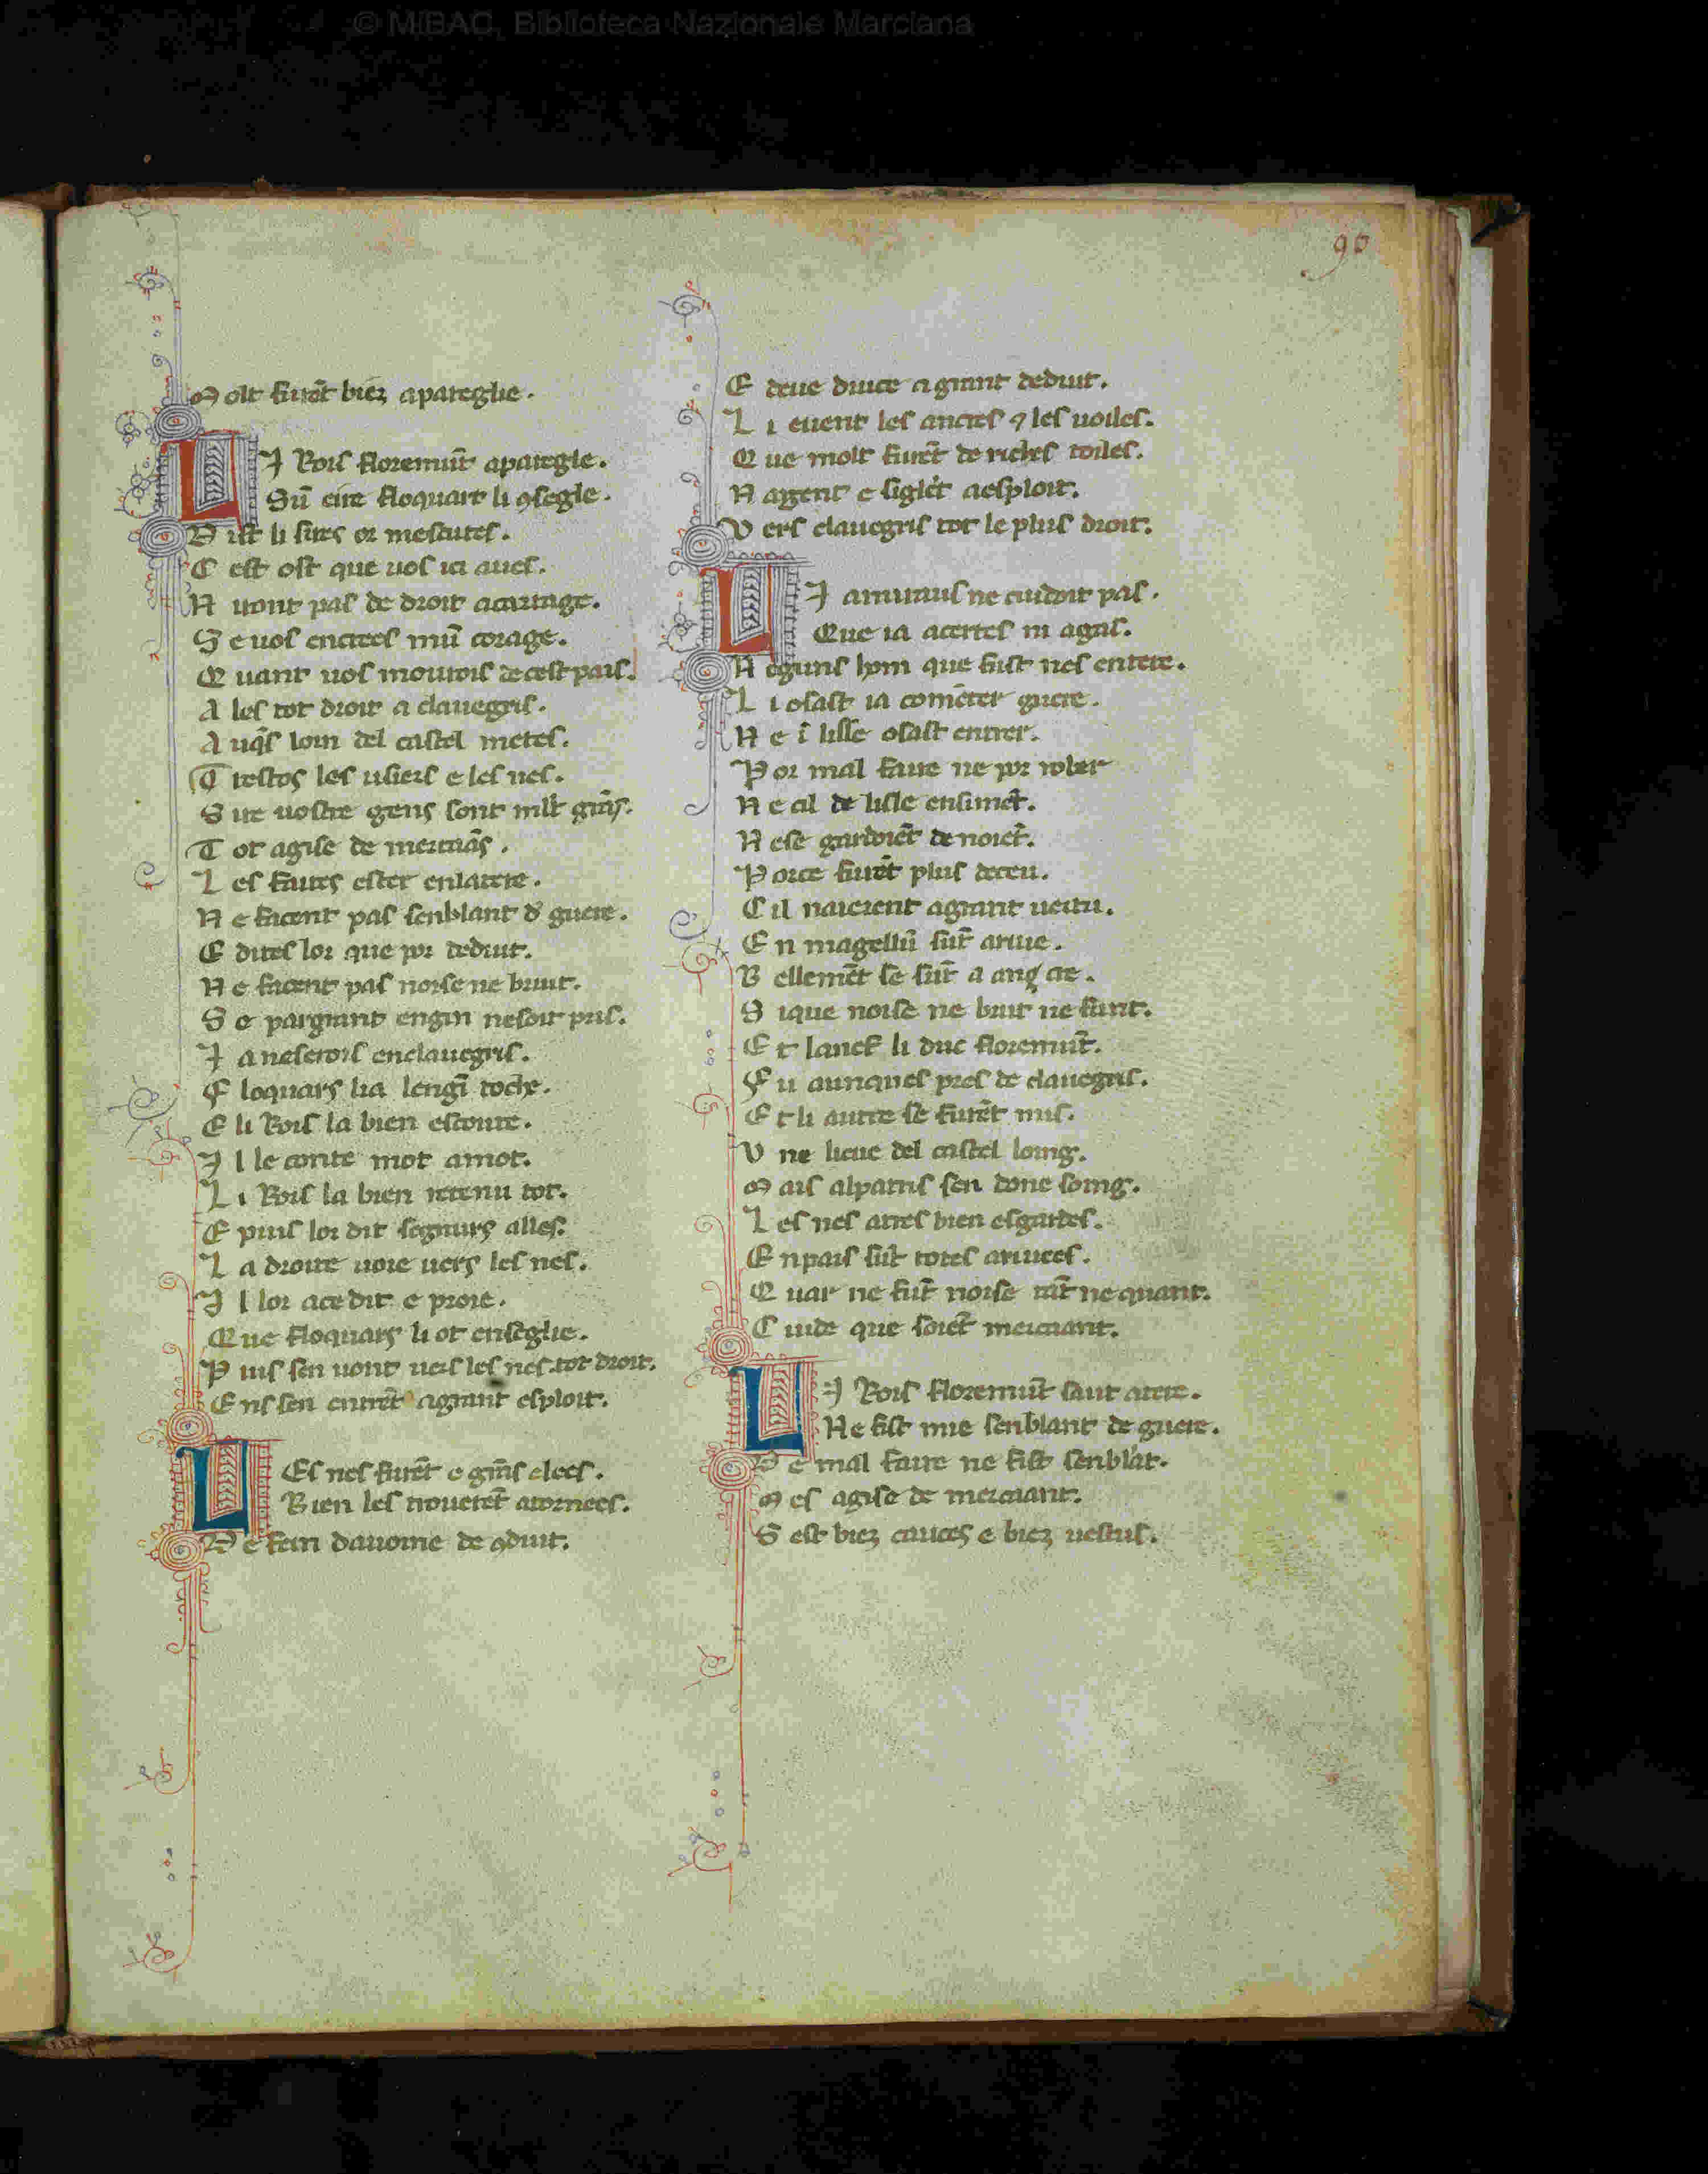 © MiBAC, Biblioteca Nazionale Marciana
90
M olt furēt biē apareglie.
L I Rois floremūt aparegle.
Sū eire floquart li ꝯsegle.
D ist li sires or mescutes.
C est ost que uos ici aues.
N uont pas de droit acartage.
S e uos encrees mū corage.
Q uant uos mourois de cest pais.
A les tot droit a clauegris.
A uq̄s loin del castel metes.
T restoz les usiers e les nes.
S ire uostre genz sont mlt grāz.
T ot agise de mercāz.
L es faites ester enlatere.
N e facent pas senblant d' guere.
E dites lor que por deduit.
N e facent pas noise ne bruit.
S e pargrant engin nesoit pris.
I a neserois enclauegris.
F loquarz lia lengī toche.
E li Rois la bien escoute.
I l le conte mot amot.
L i Rois la bien retenu tot.
E puis lor dit segnurs alles.
L a droite uoie uers les nes.
I l lor ace dit e proie.
Que floquarz li ot enseglie.
P uis sen uont uers les nes tot droit.
E ns sen entrēt agrant esploit.
L Es nes furēt e grāns elees.
Bien les trouerēt atornees.
D e fein dauoine de ꝯduit.
E deue duice agrant deduit.
L i euent les ancres ⁊ les uoiles.
Q ue molt furēt de riches toiles.
N agent e siglēt aesploit.
V ers clauegris tot le plus droit.
L I amiraus ne cuidoit pas.
Que ia acertes ni agas.
N eguns hom que fust nes entere.
L i osast ia comēcer guere.
N e ī lisle osast entrer.
P or mal faire ne por rober
N e cil de lisle ensimēt.
N ese gardoiēt de noiēt.
P orce furēt plus deceu.
C il naierent agrant uertu.
E n magellū sūt ariue.
B ellemēt se sūt a ancre.
S ique noise ne bruit ne funt.
E t lanef li duc floremūt.
F u aunques pres de clauegris.
E t li autre se furēt mis.
V ne lieue del castel loing.
M ais alpatris sen done soing.
L es nes atres bien esgardes.
E npais sūt totes ariuees.
Q uar ne fūt noise tāt ne quant.
C uide que soiēt mercant.
L I Rois floremūt saut atere.
Ne fist mie senblant de guere.
D e mal faire ne fist senblāt.
M es agise de mercant.
S est biē caucez e biē uestus.